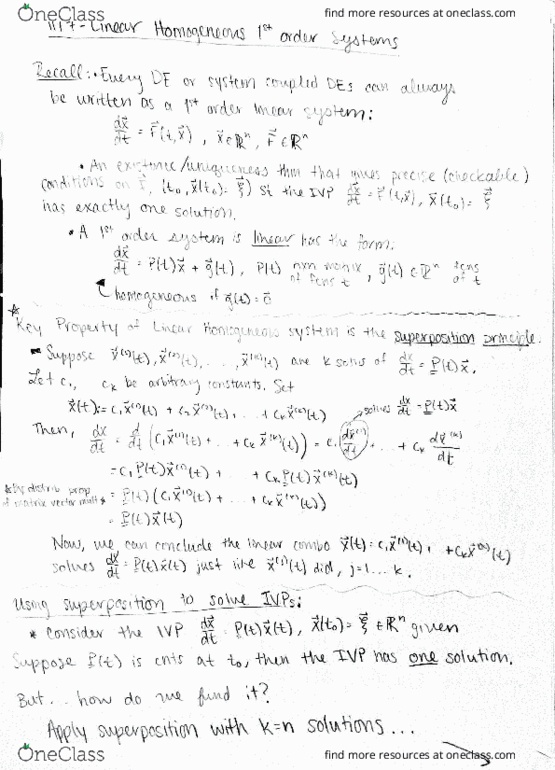 OneClass
find more resources at oneclass.com
11.7 - Linear Homogeneous 1st order Systems
Recall: • Every DE or system coupled DEs can always
be written as a 1st order linear system:
dx⃗/dt = F⃗(t,x⃗) , x⃗∈ℝⁿ, F⃗∈ℝⁿ
• An existence/uniqueness thm that gives precise (checkable)
conditions on F⃗, (t₀, x⃗(t₀) = ξ⃗) st the IVP dx⃗/dt = F⃗(t,x⃗), x⃗(t₀) = ξ⃗
has exactly one solution.
• A 1st order system is linear has the form:
dx⃗/dt = P(t)x⃗ + g⃗(t) , P(t) nxn matrix of fcns t , g⃗(t) ∈ ℝⁿ fcns of t
homogeneous if g⃗(t) = 0⃗
* Key Property of Linear Homogeneous system is the superposition principle.
Suppose x⃗⁽¹⁾(t), x⃗⁽²⁾(t), . . . , x⃗⁽ᵏ⁾(t) are k solns of dx⃗/dt = P(t)x⃗.
Let c₁, cₖ be arbitrary constants. Set
x⃗(t) = c₁x⃗⁽¹⁾(t) + c₂x⃗⁽²⁾(t), . . . + cₖx⃗⁽ᵏ⁾(t)
solves dx⃗/dt = P(t)x⃗
Then, dx⃗/dt = d/dt (c₁x⃗⁽¹⁾(t) + . . . + cₖx⃗⁽ᵏ⁾(t)) = c₁ dx⃗⁽¹⁾/dt + . . . + cₖ dx⃗⁽ᵏ⁾/dt
= c₁P(t)x⃗⁽¹⁾(t) + + cₖP(t)x⃗⁽ᵏ⁾(t)
*By distrib prop of matrix vector mult* = P(t)(c₁x⃗⁽¹⁾(t) + . . . + cₖx⃗⁽ᵏ⁾(t))
= P(t)x⃗(t)
Now, we can conclude the linear combo x⃗(t) = c₁x⃗⁽¹⁾(t), + cₖx⃗⁽ᵏ⁾(t)
solves dx⃗/dt = P(t)x⃗(t) just like x⃗⁽ʲ⁾(t) did, j=1... k.
Using superposition to solve IVPs:
* Consider the IVP dx⃗/dt = P(t)x⃗(t), x⃗(t₀) = ξ⃗ ∈ ℝⁿ given
Suppose P(t) is cnts at t₀, then the IVP has one solution.
But.. how do we find it?
Apply superposition with k=n solutions ...
OneClass
find more resources at oneclass.com